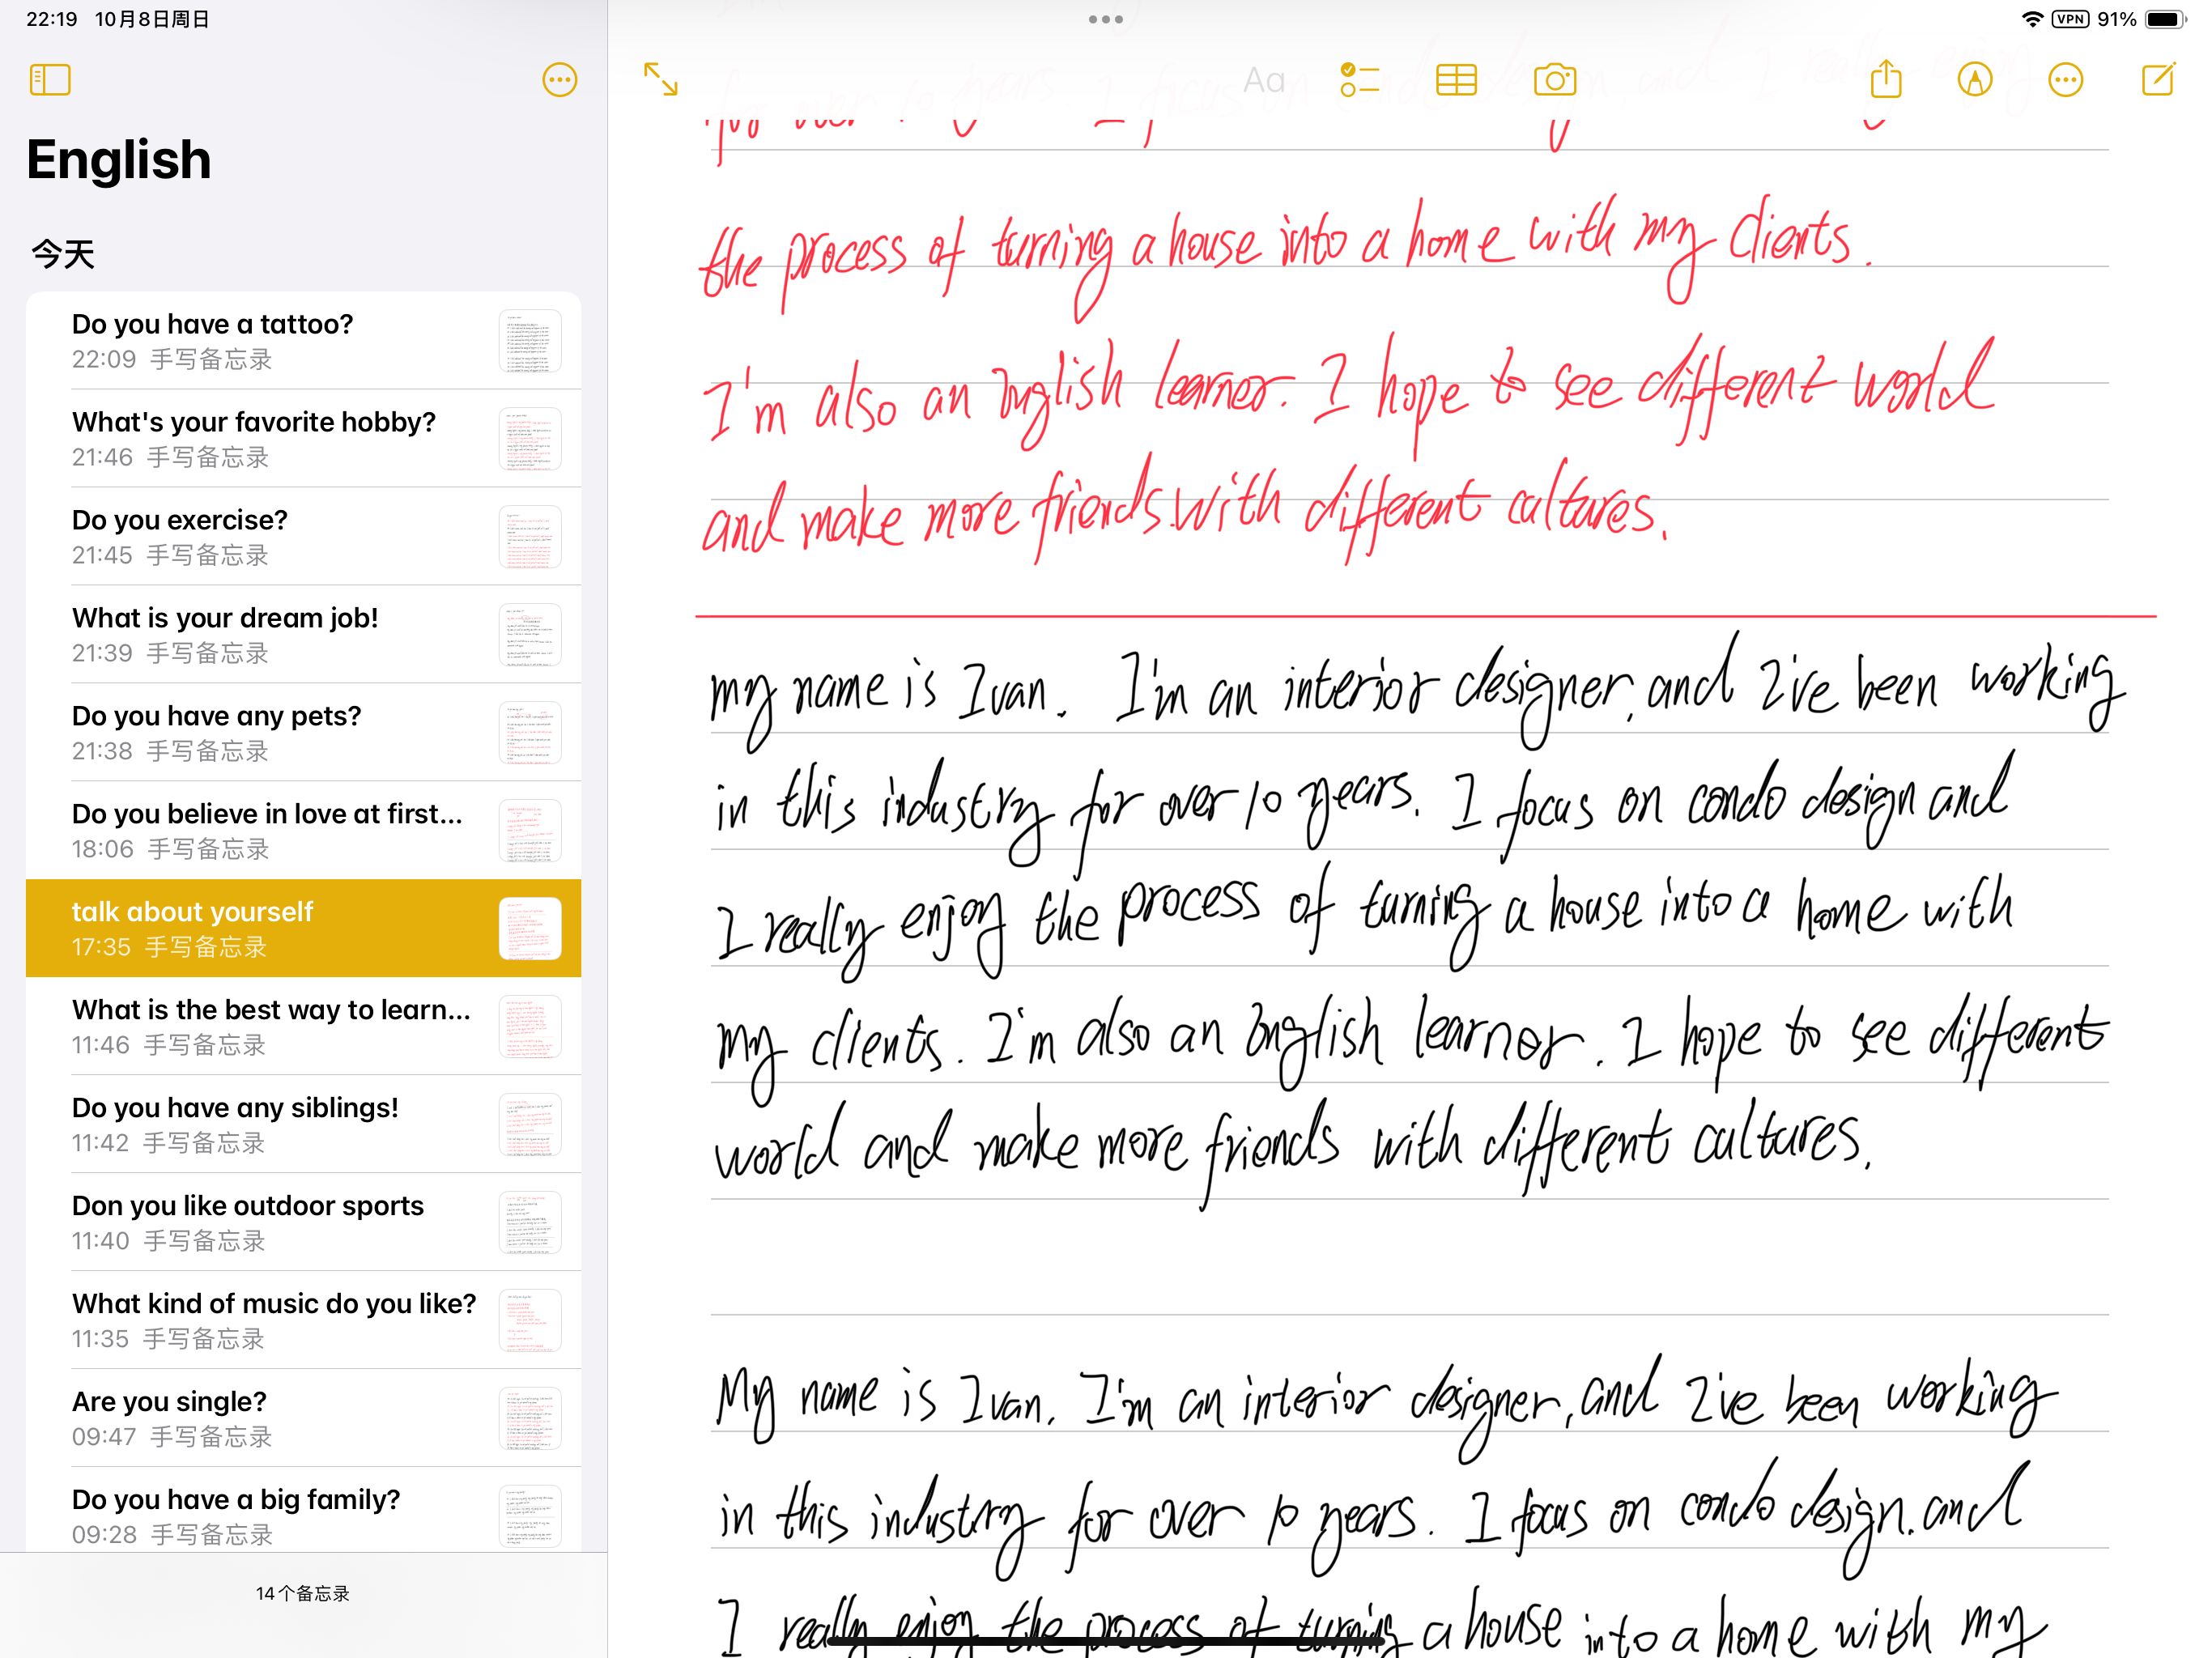 22:19 10月8日周日
VPN 91%
English
今天
Do you have a tattoo?
22:09 手写备忘录
What's your favorite hobby?
21:46 手写备忘录
Do you exercise?
21:45 手写备忘录
What is your dream job!
21:39 手写备忘录
Do you have any pets?
21:38 手写备忘录
Do you believe in love at first...
18:06 手写备忘录
talk about yourself
17:35 手写备忘录
What is the best way to learn...
11:46 手写备忘录
Do you have any siblings!
11:42 手写备忘录
Don you like outdoor sports
11:40 手写备忘录
What kind of music do you like?
11:35 手写备忘录
Are you single?
09:47 手写备忘录
Do you have a big family?
09:28 手写备忘录
14个备忘录
Aa
for over 10 years. I focus on and I really enjoy
the process of turning a house into a home with my clients.
I'm also an English learner. I hope to see different world
and make more friends.with different cultures.
my name is Ivan. I'm an interior designer, and I've been working
in this industry for over 10 years. I focus on condo design and
I really enjoy the process of turning a house into a home with
my clients. I'm also an English learner. I hope to see different
world and make more friends with different cultures.
My name is Ivan. I'm an interior designer, and I've been working
in this industry for over 10 years. I focus on condo design. and
I really enjoy the process of turning a house into a home with my